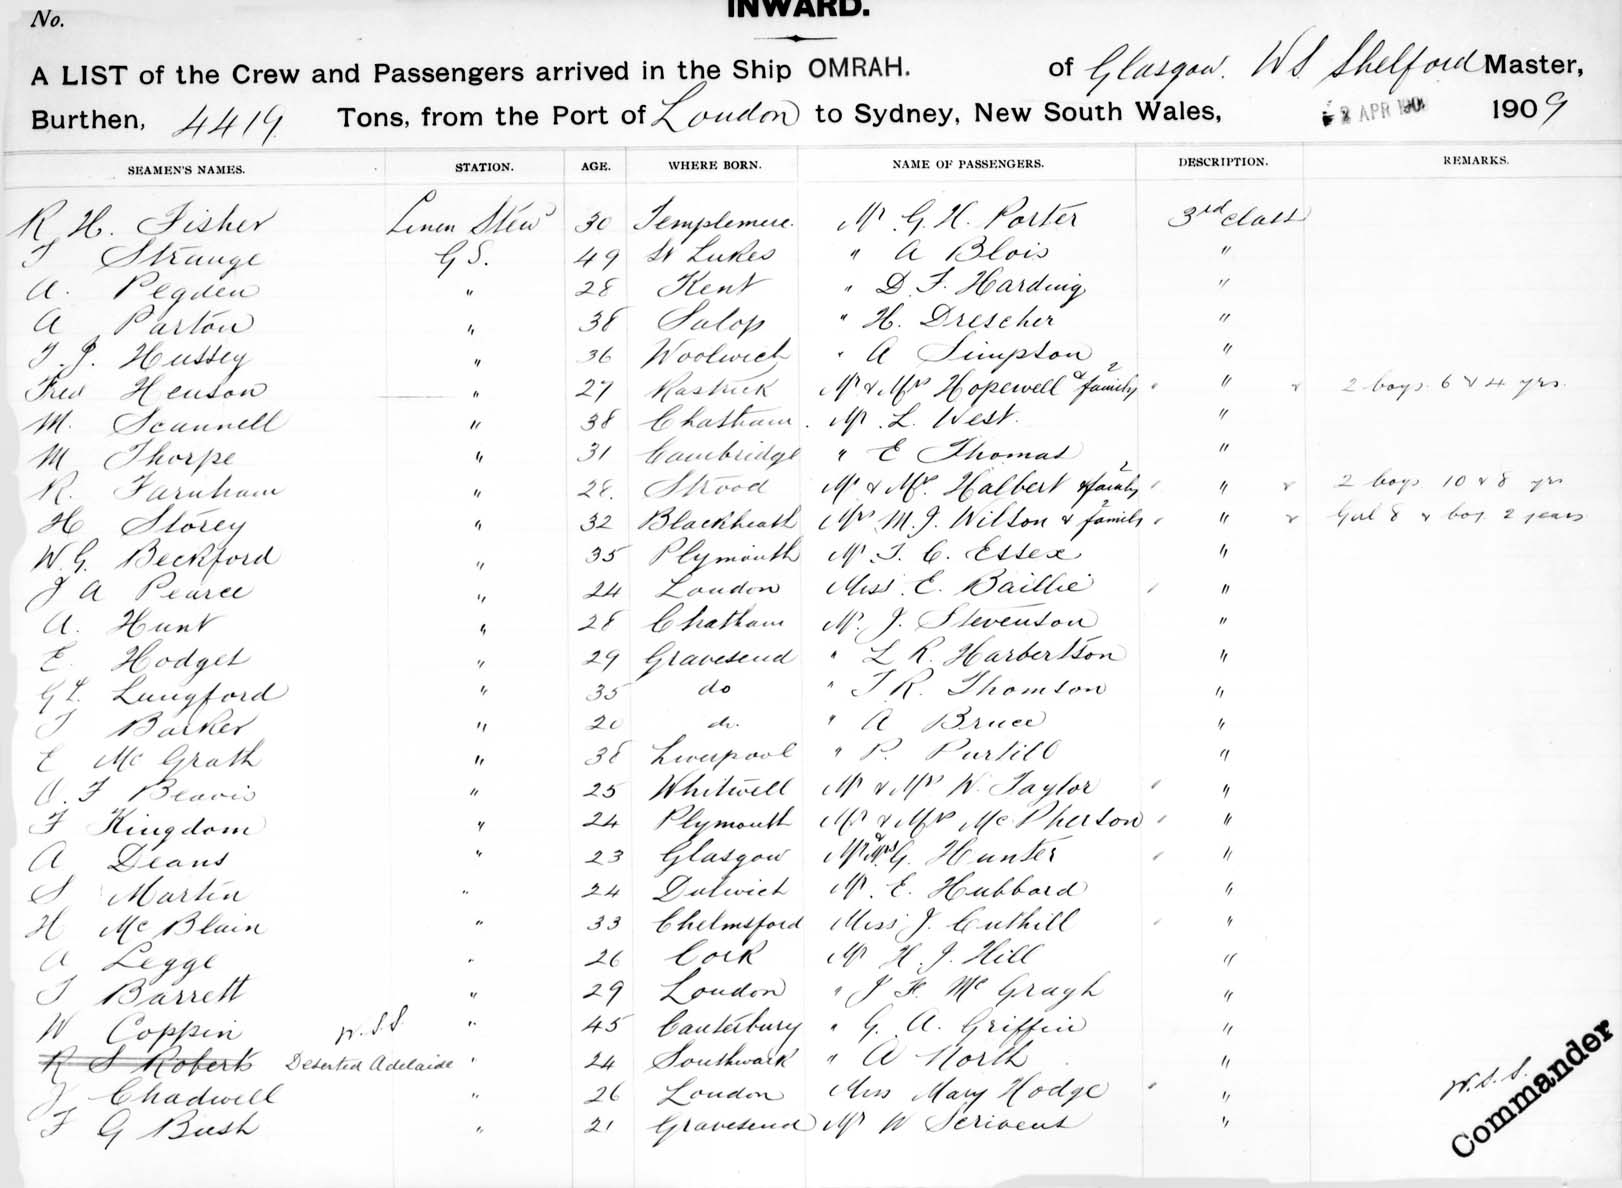 INWARD.
No.
A LIST of the Crew and Passengers arrived in the Ship OMRAH. of Glasgow. W S Shelford Master,
Burthen, 4419 Tons, from the Port of London to Sydney, New South Wales, 2 APR 190 1909
SEAMEN'S NAMES. STATION. AGE. WHERE BORN. NAME OF PASSENGERS. DESCRIPTION. REMARKS.
R H. Fisher Linen Stew 30 Templemere. Mr G. H. Porter 3rd class
T Strange G S. 49 St Lukes " A Blois "
A. Pegden " 28 Kent " D. F. Harding "
A Parton " 38 Salop " H. Drescher "
T. J. Hussey " 36 Woolwich " A Simpson "
Fred Henson " 27 Rastrick Mr & Mrs Hopewell & 2 family " & 2 boys 6 & 4 yrs.
M. Scannell " 38 Chatham. Mr. L. West. "
M Thorpe " 31 Cambridge " E Thomas "
R. Farnham " 28. Strood Mr & Mrs. Halbert & 2 family " & 2 boys 10 & 8 yrs
H Storey " 32 Blackheath Mrs M. J. Wilson & 2 family " & Girl 8 & boy 2 years
W. G. Beckford " 35 Plymouth Mr. T. C. Essex "
J A Pearce " 24 London Miss. E. Baillie "
A. Hunt " 28 Chatham Mr. J. Stevenson "
E. Hodges " 29 Gravesend " L R. Harbertson "
G L. Lungford " 35 do " T R. Thomson "
T Barker " 20 do. " A Bruce "
E McGrath " 38 Liverpool " P. Purtill "
A. F Beavis " 25 Whitwell Mr & Mrs W. Taylor "
F Kingdom " 24 Plymouth Mr & Mrs McPherson "
A Deans " 23 Glasgow Mr & Mrs G. Hunter "
S Martin " 24 Dulwich Mr. E. Hubbard "
H McBlain " 33 Chelmsford Miss J. Cuthill "
A Legge " 26 Cork Mr H. J. Hill "
T Barrett " 29 London " J F. McGragh "
W Coppin W.S.S. " 45 Canterbury " G. A. Griffin "
R S Roberts Deserted Adelaide " 24 Southwark " A North "
J Chadwell " 26 London Miss Mary Hodge "
F G Bush " 21 Gravesend Mr W Scrivens "
W.S.S.
Commander